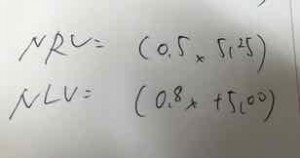 NRV= (0,5 x 5,25)
NLV= (0,8x +5,00)